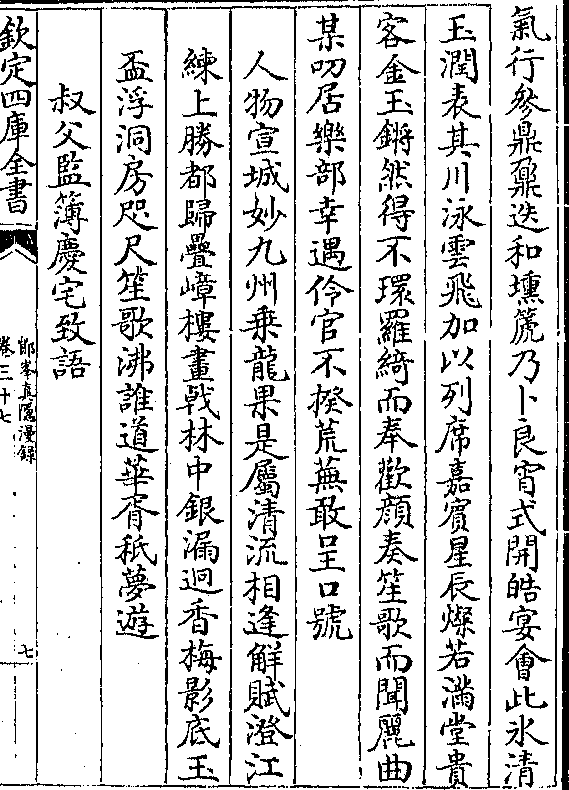 氣行參鼎鼐迭和壎箎乃卜良宵式開皓宴㑹此氷清
玉潤表其川泳雲飛加以列席嘉賓星辰燦若滿堂貴
客金玉鏘然得不環羅綺而奉歡顔奏笙歌而聞麗曲
某叨居樂部幸遇伶官不揆荒蕪敢呈口號
人物宣城妙九州乗龍果是屬清流相逢解賦澄江
練上勝都歸疊嶂樓畫㦸林中銀漏迥香梅影底玉
盃浮洞房咫尺笙歌沸誰道華胥秖夢遊
叔父監簿慶宅致語
欽定四庫全書
鄮峯真隱漫録
卷三十七
七